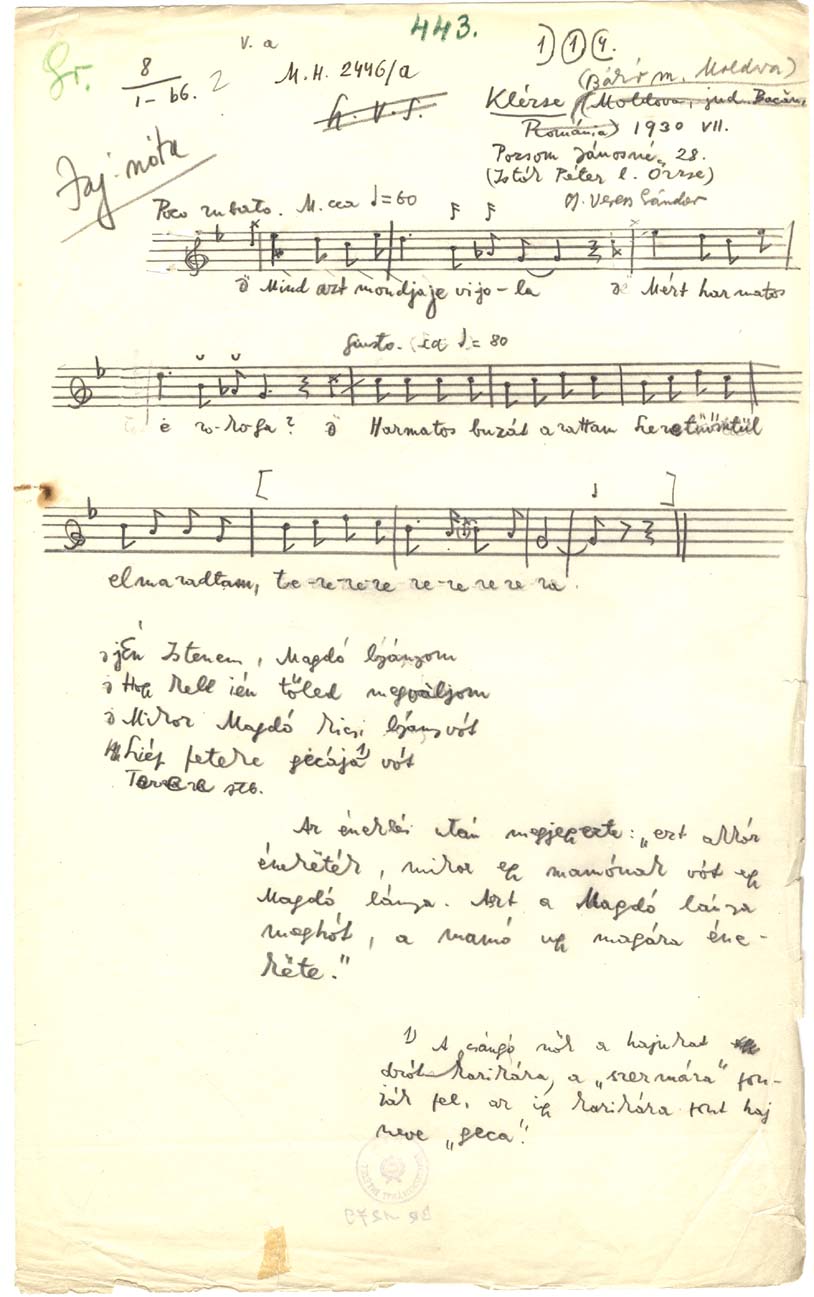 443.
V. a
1) 1 4.
Gr.
8
1 – b6.
2
M.H. 2446/a
(Bákó m. Moldva)
Klézse (Moldova, jud. Bacău,
România) 1930 VII.
Pozsom Jánosné, 28.
(Istók Péter l. Örzse)
Gy. Veress Sándor
Jaj-nóta
Poco rubato. M. cca = 60
ă Mind azt mondjaje vijo-la ă Mért harmatos
Giusto. ca = 80
e ro-koja? ă Harmatos buzát arattam Szeretüömtül
elmaradtam, te-re-re-re re-re re re ra.
ă jÉn Istenem, Magdó lyányom
ă Hogy kell ién tőled megváljom
ă Mikor Magdó kicsi lyány vót
Sziép fetete gëcájá 1) vót
Terere stb.
Az éneklés után megjegyezte: „ezt akkor
énekëték, mikor egy mamónak vót egy
Magdó lánya. Azt a Magdó lánya
meghót, a mamó ugy magára éne-
këte."
1) A csángó nők a hajukat
drót karikára, a „szermára" fon-
ják fel, az igy karikára font haj
neve „geca".